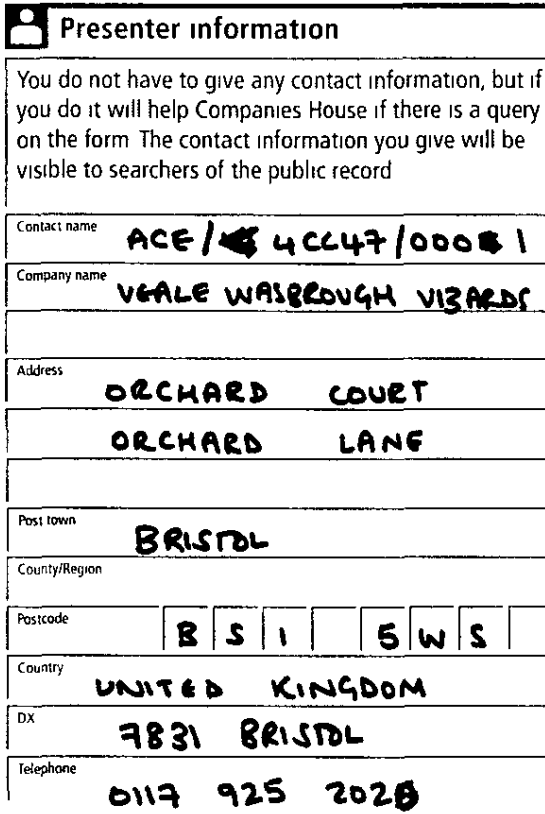 Presenter information
You do not have to give any contact information, but if
you do it will help Companies House if there is a query
on the form The contact information you give will be
visible to searchers of the public record
Contact name
ACE/ 4CC47/000 1
Company name
VEALE WASBROUGH VIZARDS
Address
ORCHARD COURT
ORCHARD LANE
Post town
BRISTOL
County/Region
Postcode
BS1 5WS
Country
UNITED KINGDOM
DX
7831 BRISTOL
Telephone
0117 925 202